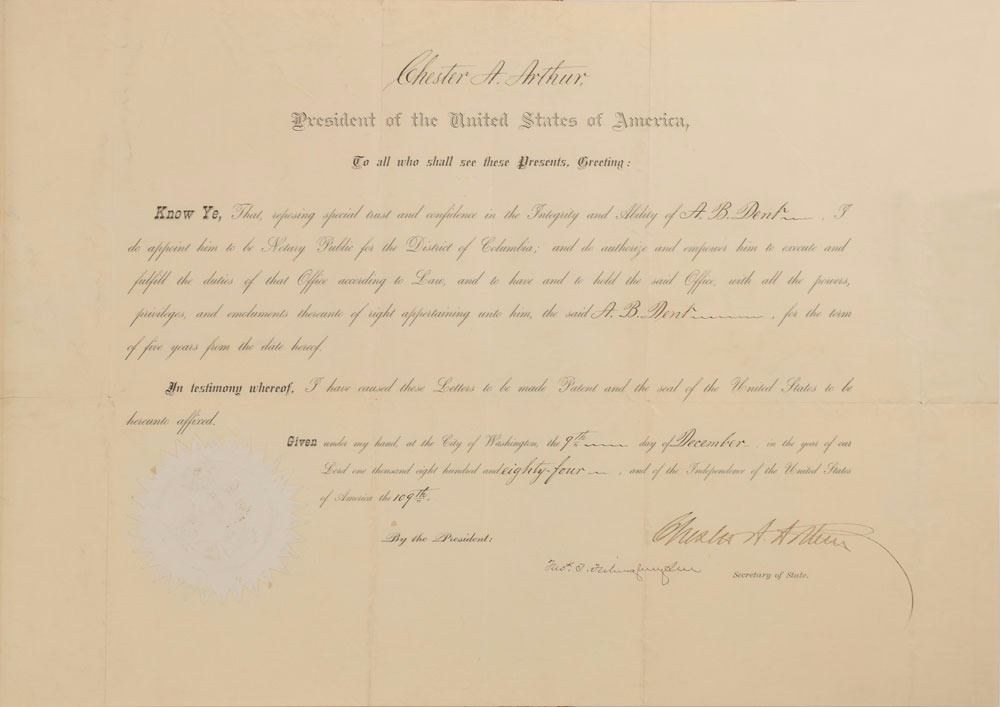 Chester A. Arthur,
President of the United States of America,
To all who shall see these Presents, Greeting:
Know Ye, That, reposing special trust and confidence in the Integrity and Ability of A. B. Dent, I
do appoint him to be Notary Public for the District of Columbia; and do authorize and empower him to execute and
fulfill the duties of that Office according to Law, and to have and to hold the said Office, with all the powers,
privileges, and emoluments thereunto of right appertaining unto him, the said A. B. Dent, for the term
of five years from the date hereof.
In testimony whereof, I have caused these Letters to be made Patent and the seal of the United States to be
hereunto affixed.
Given under my hand, at the City of Washington, the 9th day of December, in the year of our
Lord one thousand eight hundred and eighty-four, and of the Independence of the United States
of America the 109th.
By the President:
Chester A. Arthur
Fredk. T. Frelinghuysen
Secretary of State.